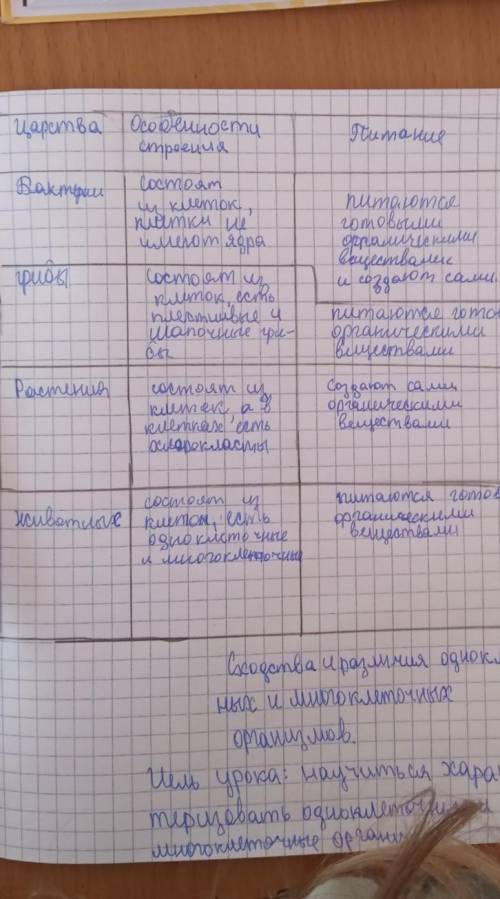 Царства Особенности Питание
строения
Бактерии состоят
из клеток,
клетки не
имеют ядра
питаются
готовыми
органическими
веществами
и создают сами.
грибы состоят из
клеток, есть
и
шапочные гри-
бы
питаются гото
органическими
веществами
Растения состоят из
клеток, а в
клетках есть
хлоропласты
создают сами
органическими
веществами
животные состоят из
клеток, есть
одноклеточные
и многоклеточные
питаются готов
органическими
веществами
Сходства и различия однокл
ных и многоклеточных
организмов.
Цель урока: научиться хара
теризовать одноклеточные
многоклеточные органи